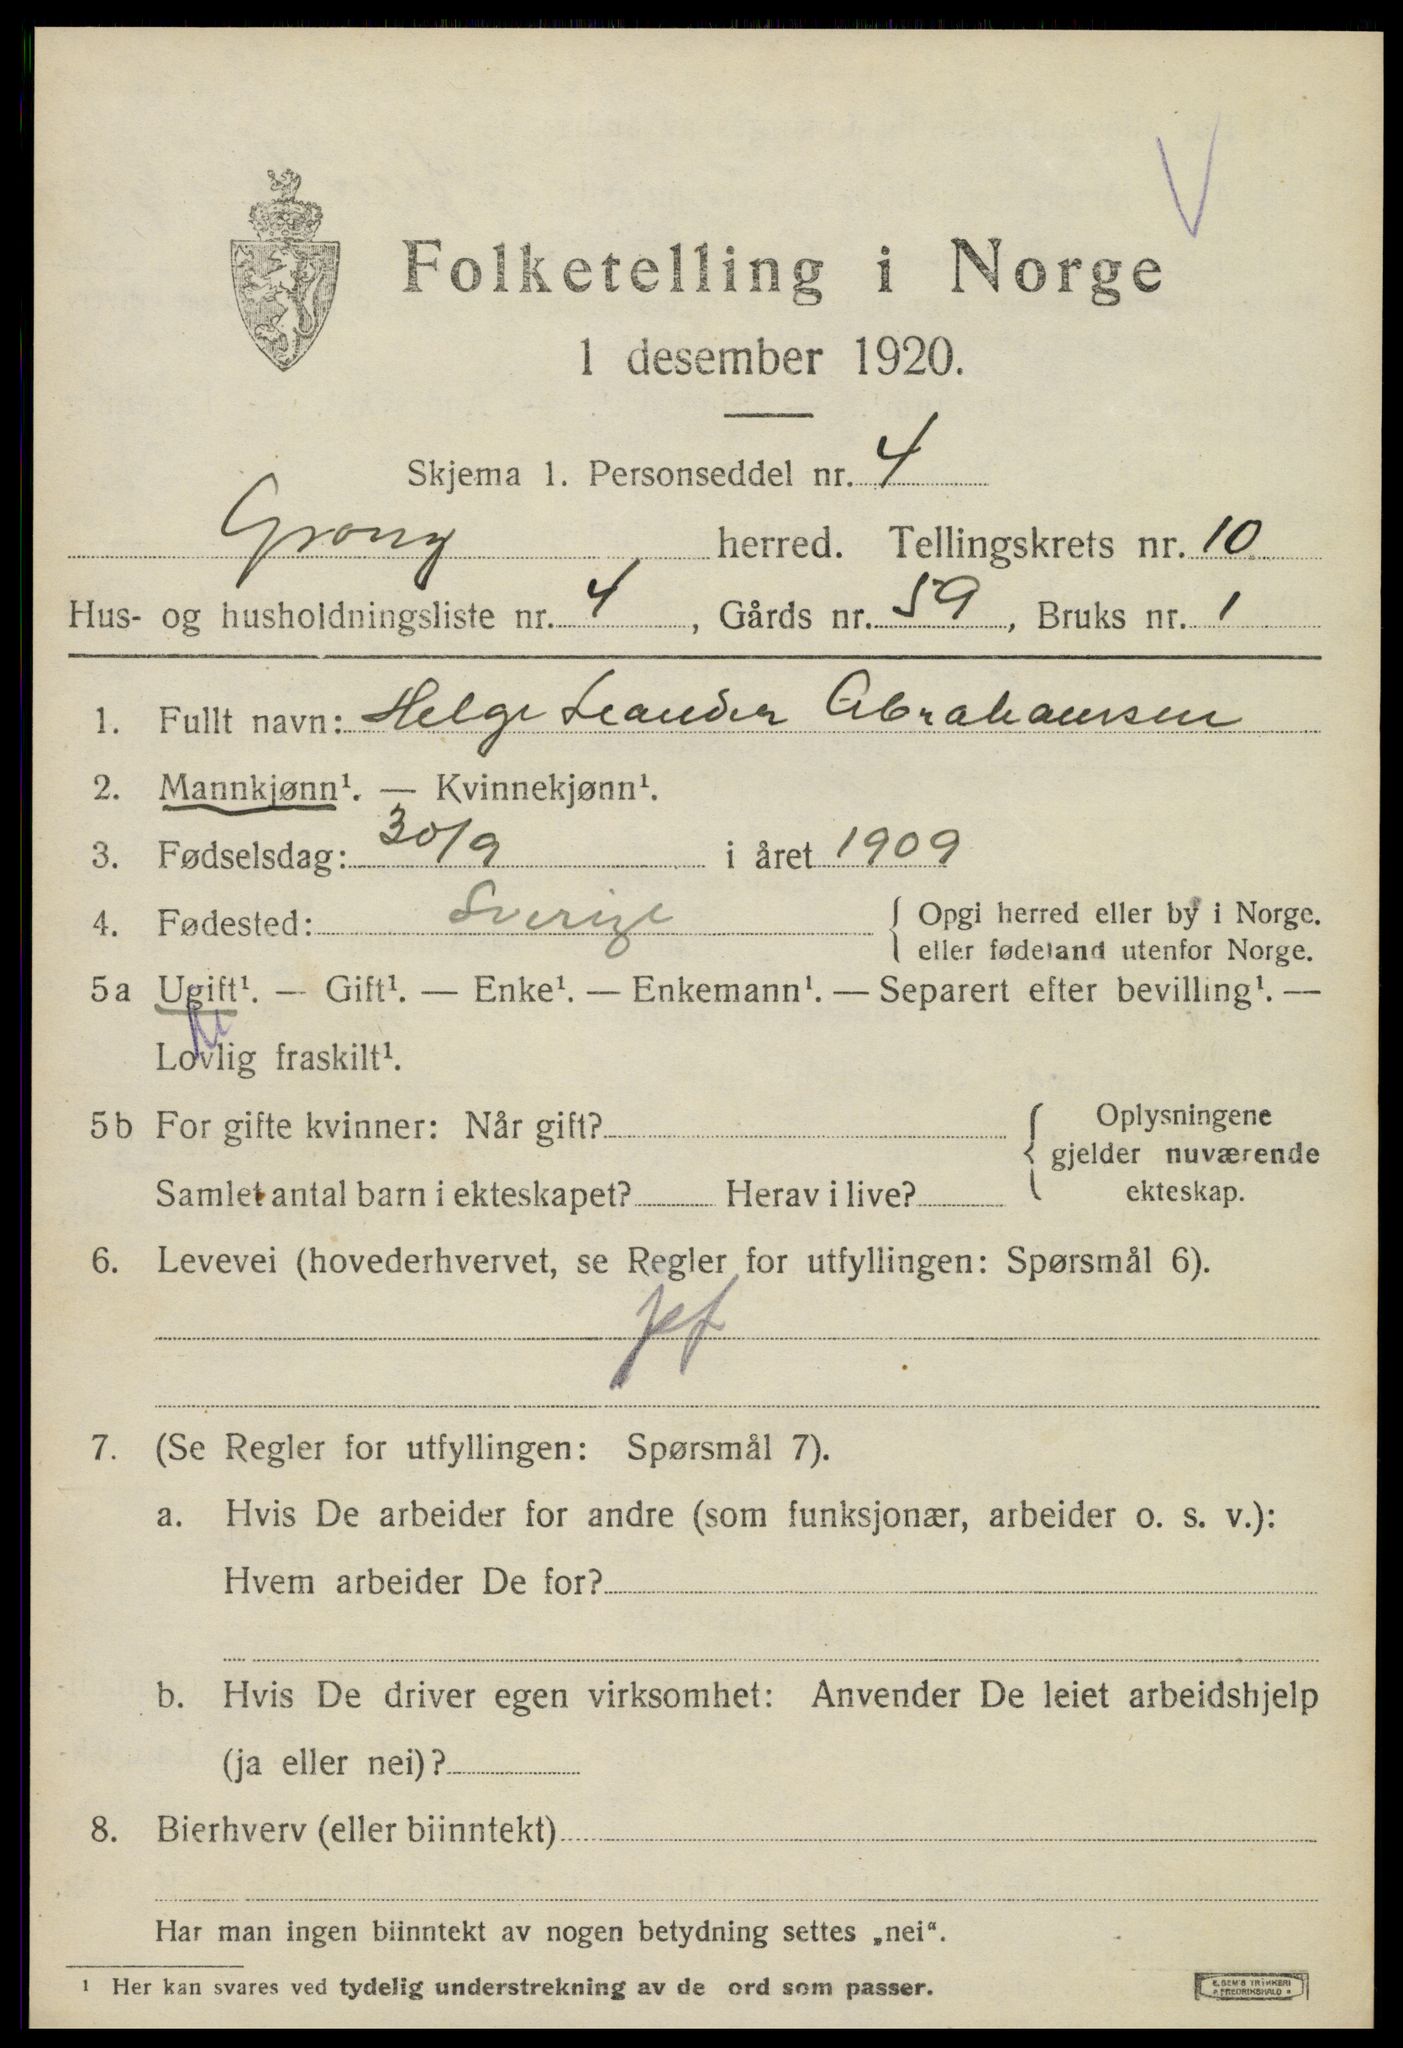 V
Folketelling i Norge
1 desember 1920.
Skjema 1. Personseddel nr. 4
Grong herred. Tellingskrets nr. 10
Hus- og husholdningsliste nr. 4, Gårds nr. 59, Bruks nr. 1
1. Fullt navn: Helge Leander Abrahamsen
2. Mannkjønn¹. — Kvinnekjønn¹.
3. Fødselsdag: 30/9 i året 1909
4. Fødested: Sverige { Opgi herred eller by i Norge.
eller fødeland utenfor Norge.
5a Ugift¹. — Gift¹. — Enke¹. — Enkemann¹. — Separert efter bevilling¹. —
Lovlig fraskilt¹.
5b For gifte kvinner: Når gift? { Oplysningene
gjelder nuværende
Samlet antal barn i ekteskapet? Herav i live? ekteskap.
6. Levevei (hovederhvervet, se Regler for utfyllingen: Spørsmål 6).
7. (Se Regler for utfyllingen: Spørsmål 7).
a. Hvis De arbeider for andre (som funksjonær, arbeider o. s. v.):
Hvem arbeider De for?
b. Hvis De driver egen virksomhet: Anvender De leiet arbeidshjelp
(ja eller nei)?
8. Bierhverv (eller biinntekt)
Har man ingen biinntekt av nogen betydning settes „nei“.
¹ Her kan svares ved tydelig understrekning av de ord som passer.
E. SEM'S TRYKKERI
FREDRIKSHALD